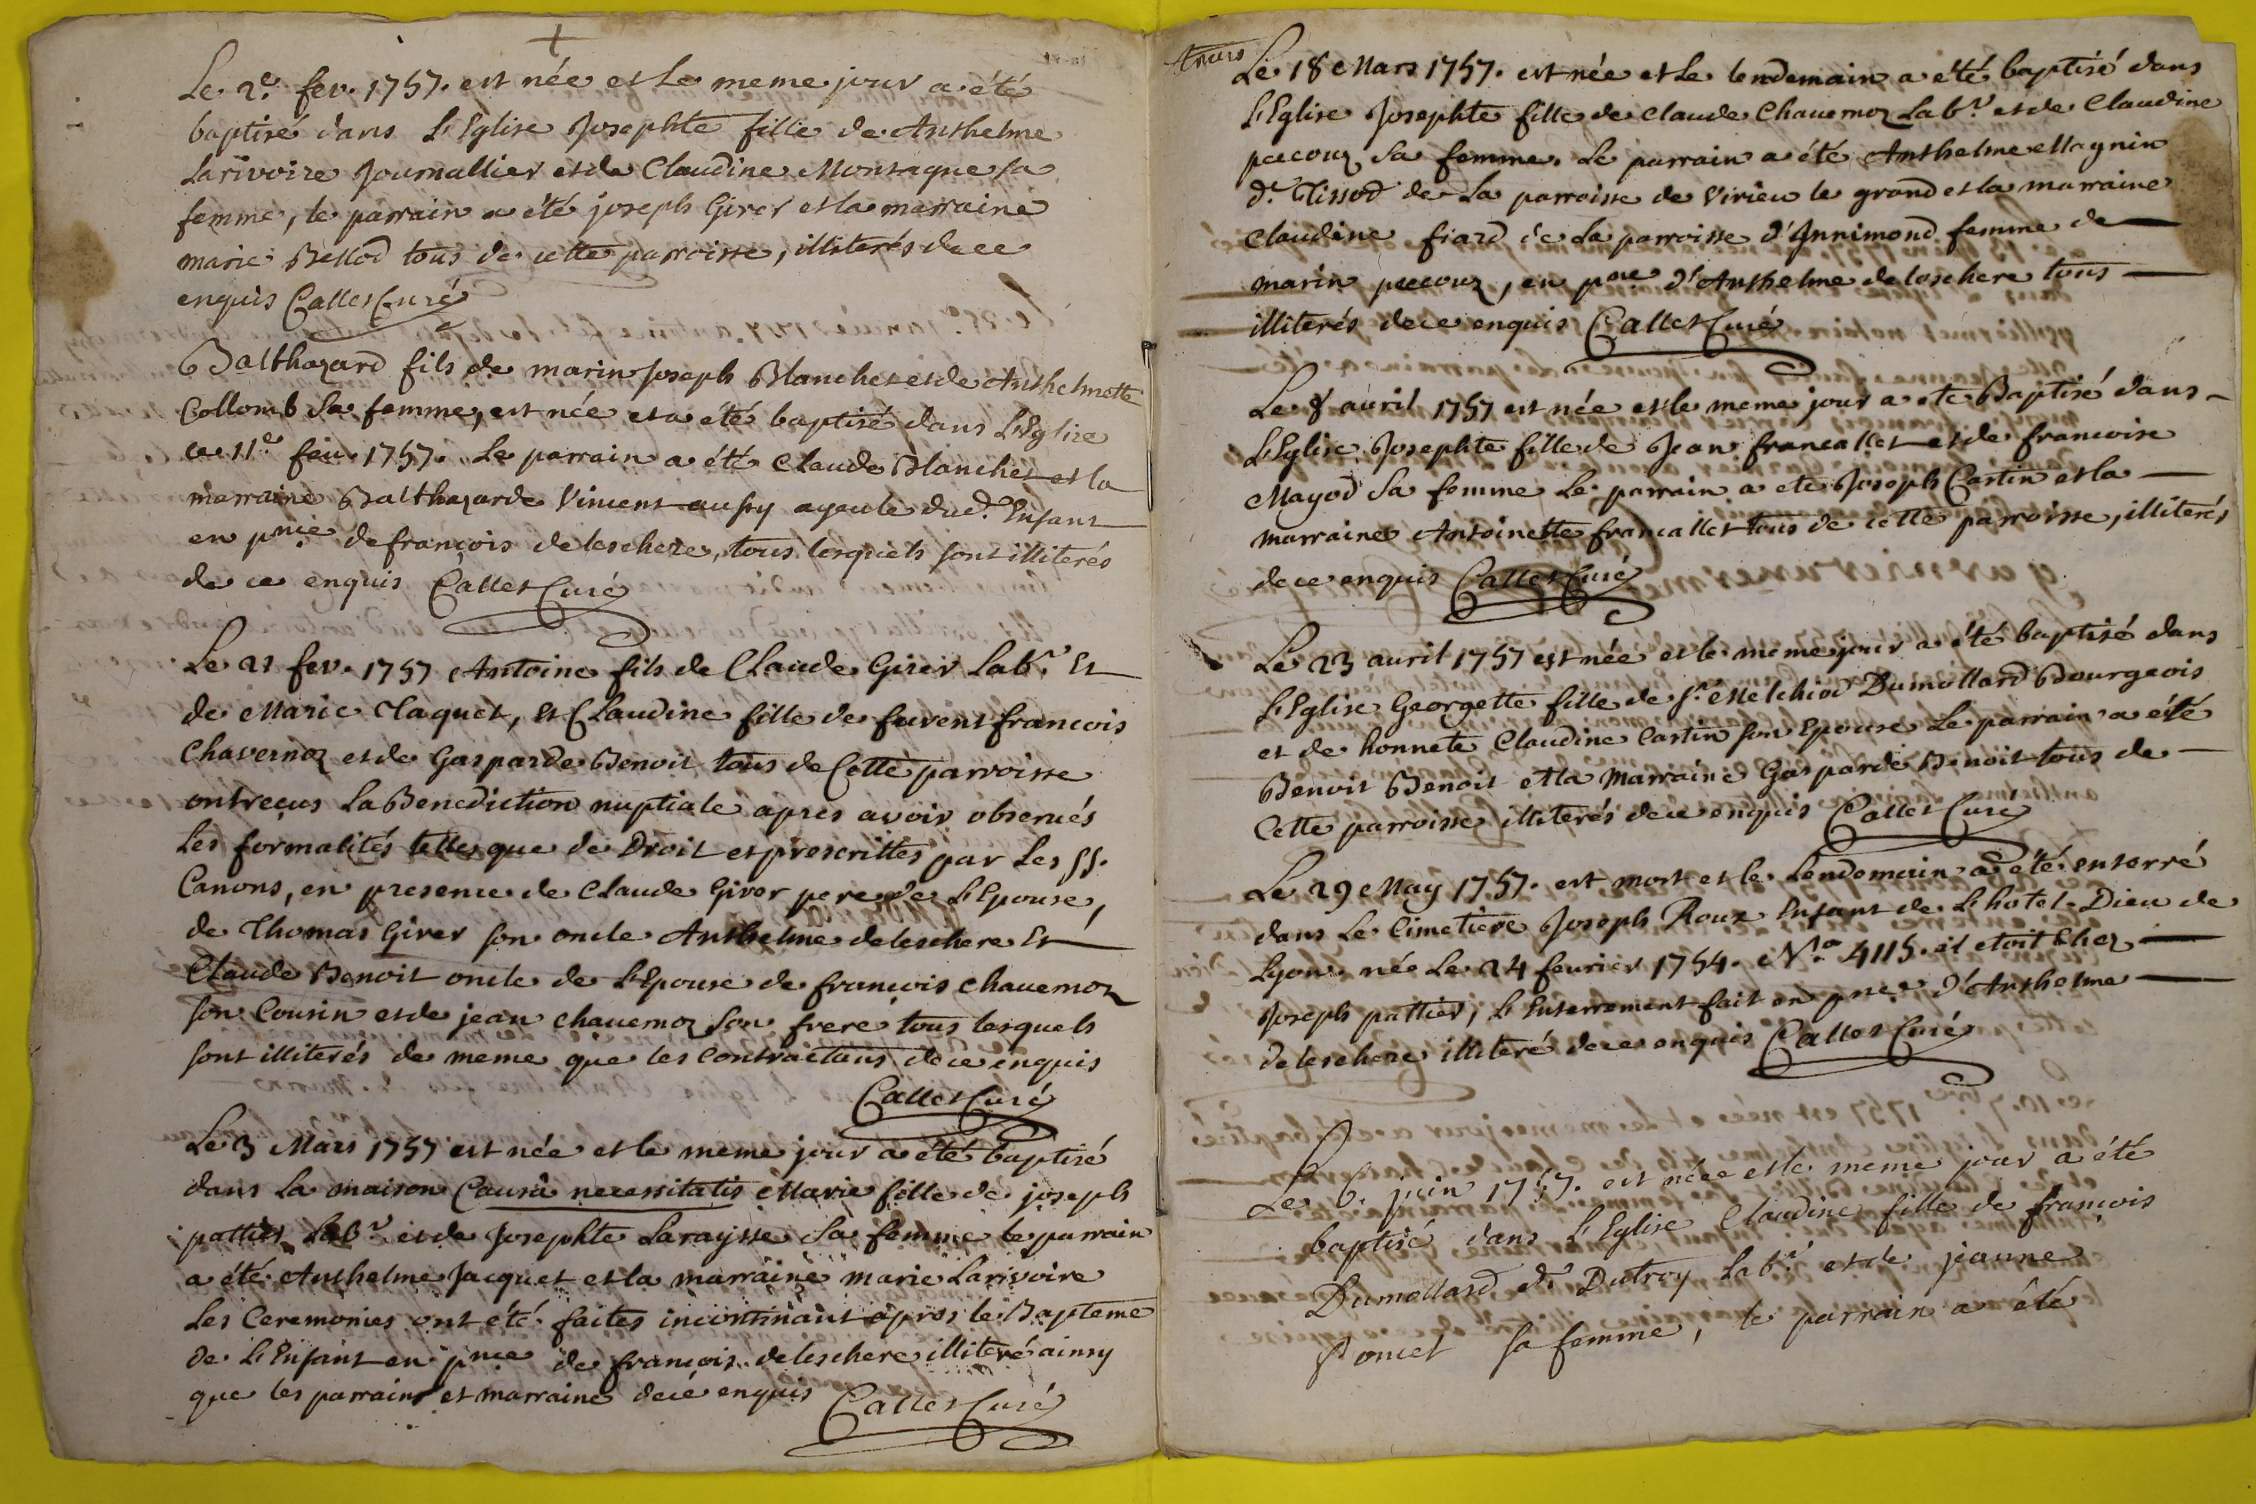 Le 2e fev. 1757. est née et Le meme jour a été
baptisé dans L'Eglise Josephte fille de Anthelme
Larivoire Journallier et de Claudine Montague sa
femme, le parrain a été joseph Girer et la marraine
marie Bellod tous de cette parroisse, illiterés de ce
enquis Callet Curé
Balthazard fils de marin Joseph Blanchet et de Anthelmette
Collomb Sa femme, est née et a été baptisé dans L'Eglise
ce 11e feu. 1757. Le parrain a été Claude Blanchet et la
marraine Balthazarde Vincent aussy ayeule dud. Enfant
en pnce de françois deleschere, tous lesquels sont illiterés
de ce enquis Callet Curé
Le 21 fev. 1757 Antoine fils de Claude Girer Labr. Et
de Marie Claquet, Et Claudine fille de fuvent francois
Chavernoz et de Gasparde Benoit tous de Cette parroisse
ont reçus La Benediction nuptiale apres avoir obserués
Les formalités telles que de Droit et prescrittes par Les SS.
Canons, en presence de Claude Girer pere de L'Epouse,
de Thomas Girer son oncle Anthelme deleschere Et
Claude Benoit oncle de L'Epouse de françois chauernoz
son Cousin et de jean chauernoz Son frere tous lesquels
sont illiterés de meme que les Contractans de ce enquis
Callet Curé
Le 3 Mars 1757 est née et le meme jour a été baptisé
dans La maison Causâ necessitatis Marie fille de joseph
pattier Labr. et de Josephte Laraysse Sa femme le parrain
a été Anthelme Jacquet et la marraine marie Larivoire
Les Ceremonies ont été faites incontinant apres le Bapteme
de L'Enfant en pnce de françois deleschere illiteré ainsy
que les parrains et marraine de cé enquis Callet Curé
Le 18 Mars 1757. est née et Le lendemain a été baptisé dans
L'Eglise Josephte fille de Claude Chauernoz Labr. et de Claudine
peccouz Sa femme. Le parrain a été Anthelme Magnin
dt Tissod de La parroisse de Virieu le grand et la marraine
Claudine fiard de La parroisse d'Innimond femme de
marin peccouz, en pnce d'Anthelme deleschere tous
illiterés de ce enquis Callet Curé
Le 8 auril 1757 est née et le meme jour a ete Baptisé dans
L'Eglise Josephte fille de Jean francallet et de francoise
Mayod Sa femme Le parrain a ete Joseph Cartin et la
marraine Antoinette francallet tous de cette parroisse, illiterés
de ce enquis Callet Curé
Le 23 auril 1757 est née et le meme jour a été baptisé dans
L'Eglise Georgette fille de Sr. Melchiod Dumollard Bourgeois
et de honnete Claudine Cartin son Epouse Le parrain a été
Benoit Benoit et la Marraine Gasparde Benoit tous de
Cette parroisse illiterés de ce enquis Callet Curé
Le 29 May 1757. est mort et le Lendemain a été enterré
dans Le Cimetiere Joseph Roux Enfant de L'hotel-Dieu de
Lyon née Le 24 feurier 1754. No. 4115. il etoit Chez
Joseph pattier, L'Enterrement fait en pnce d'Anthelme
deleschere illiteré de ce enquis Callet Curé
Le 6. juin 1757. est née et le meme jour a été
baptisé dans L'Eglise Claudine fille de françois
Dumollard dt Dutroy Labr. et de jeanne
Poncet sa femme, le parrain a été